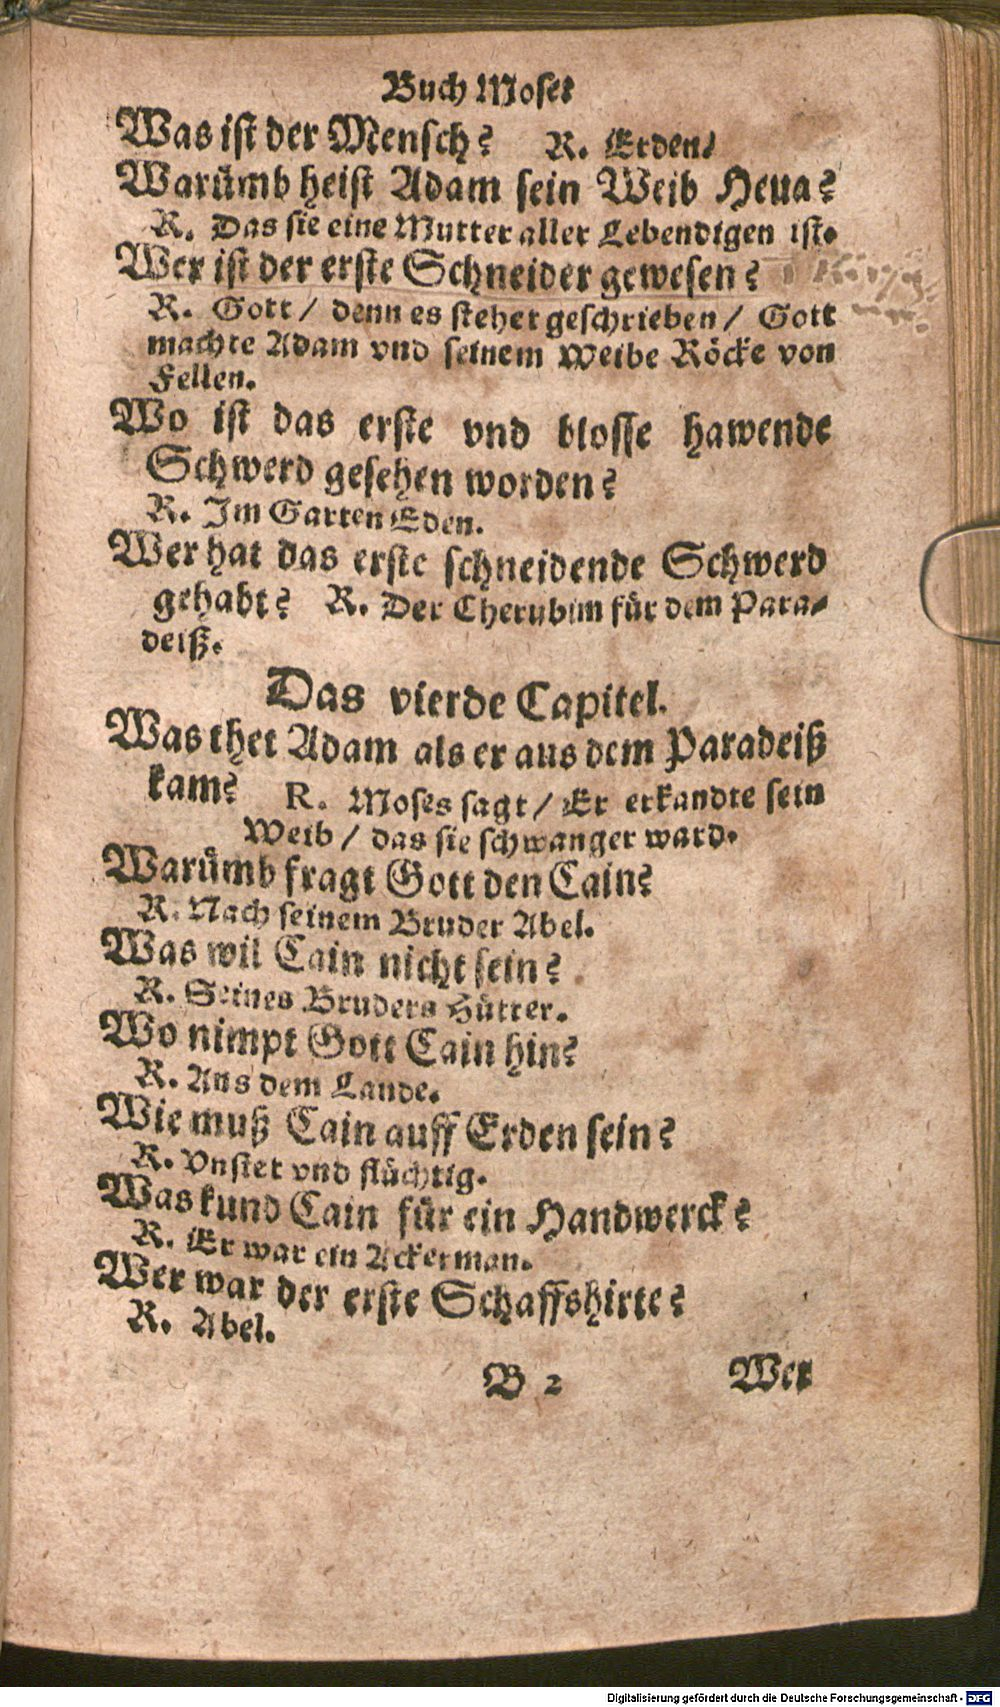 Buch Moses
Was ist der Mensch? R. Erden.
Warümb heist Adam sein Weib Heua?
R. Das sie eine Mutter aller Lebendigen ist.
Wer ist der erste Schneider gewesen?
R. Gott / denn es stehet geschrieben / Gott
machte Adam vnd seinem Weibe Röcke von
Fellen.
Wo ist das erste vnd blosse hawende
Schwerd gesehen worden?
R. Im Garten Eden.
Wer hat das erste schneidende Schwerd
gehabt? R. Der Cherubim für dem Para-
deiß.
Das vierde Capitel.
Was thet Adam als er aus dem Paradeiß
kam? R. Moses sagt / Er erkandte sein
Weib / das sie schwanger ward.
Warümb fragt Gott den Cain?
R. Nach seinem Bruder Abel.
Was wil Cain nicht sein?
R. Seines Bruders Hütter.
Wo nimpt Gott Cain hin?
R. Aus dem Lande.
Wie muß Cain auff Erden sein?
R. Vnstet vnd flüchtig.
Was kund Cain für ein Handwerck?
R. Er war ein Ackerman.
Wer war der erste Schaffshirte?
R. Abel.
B 2 Wer
Digitalisierung gefördert durch die Deutsche Forschungsgemeinschaft - DFG